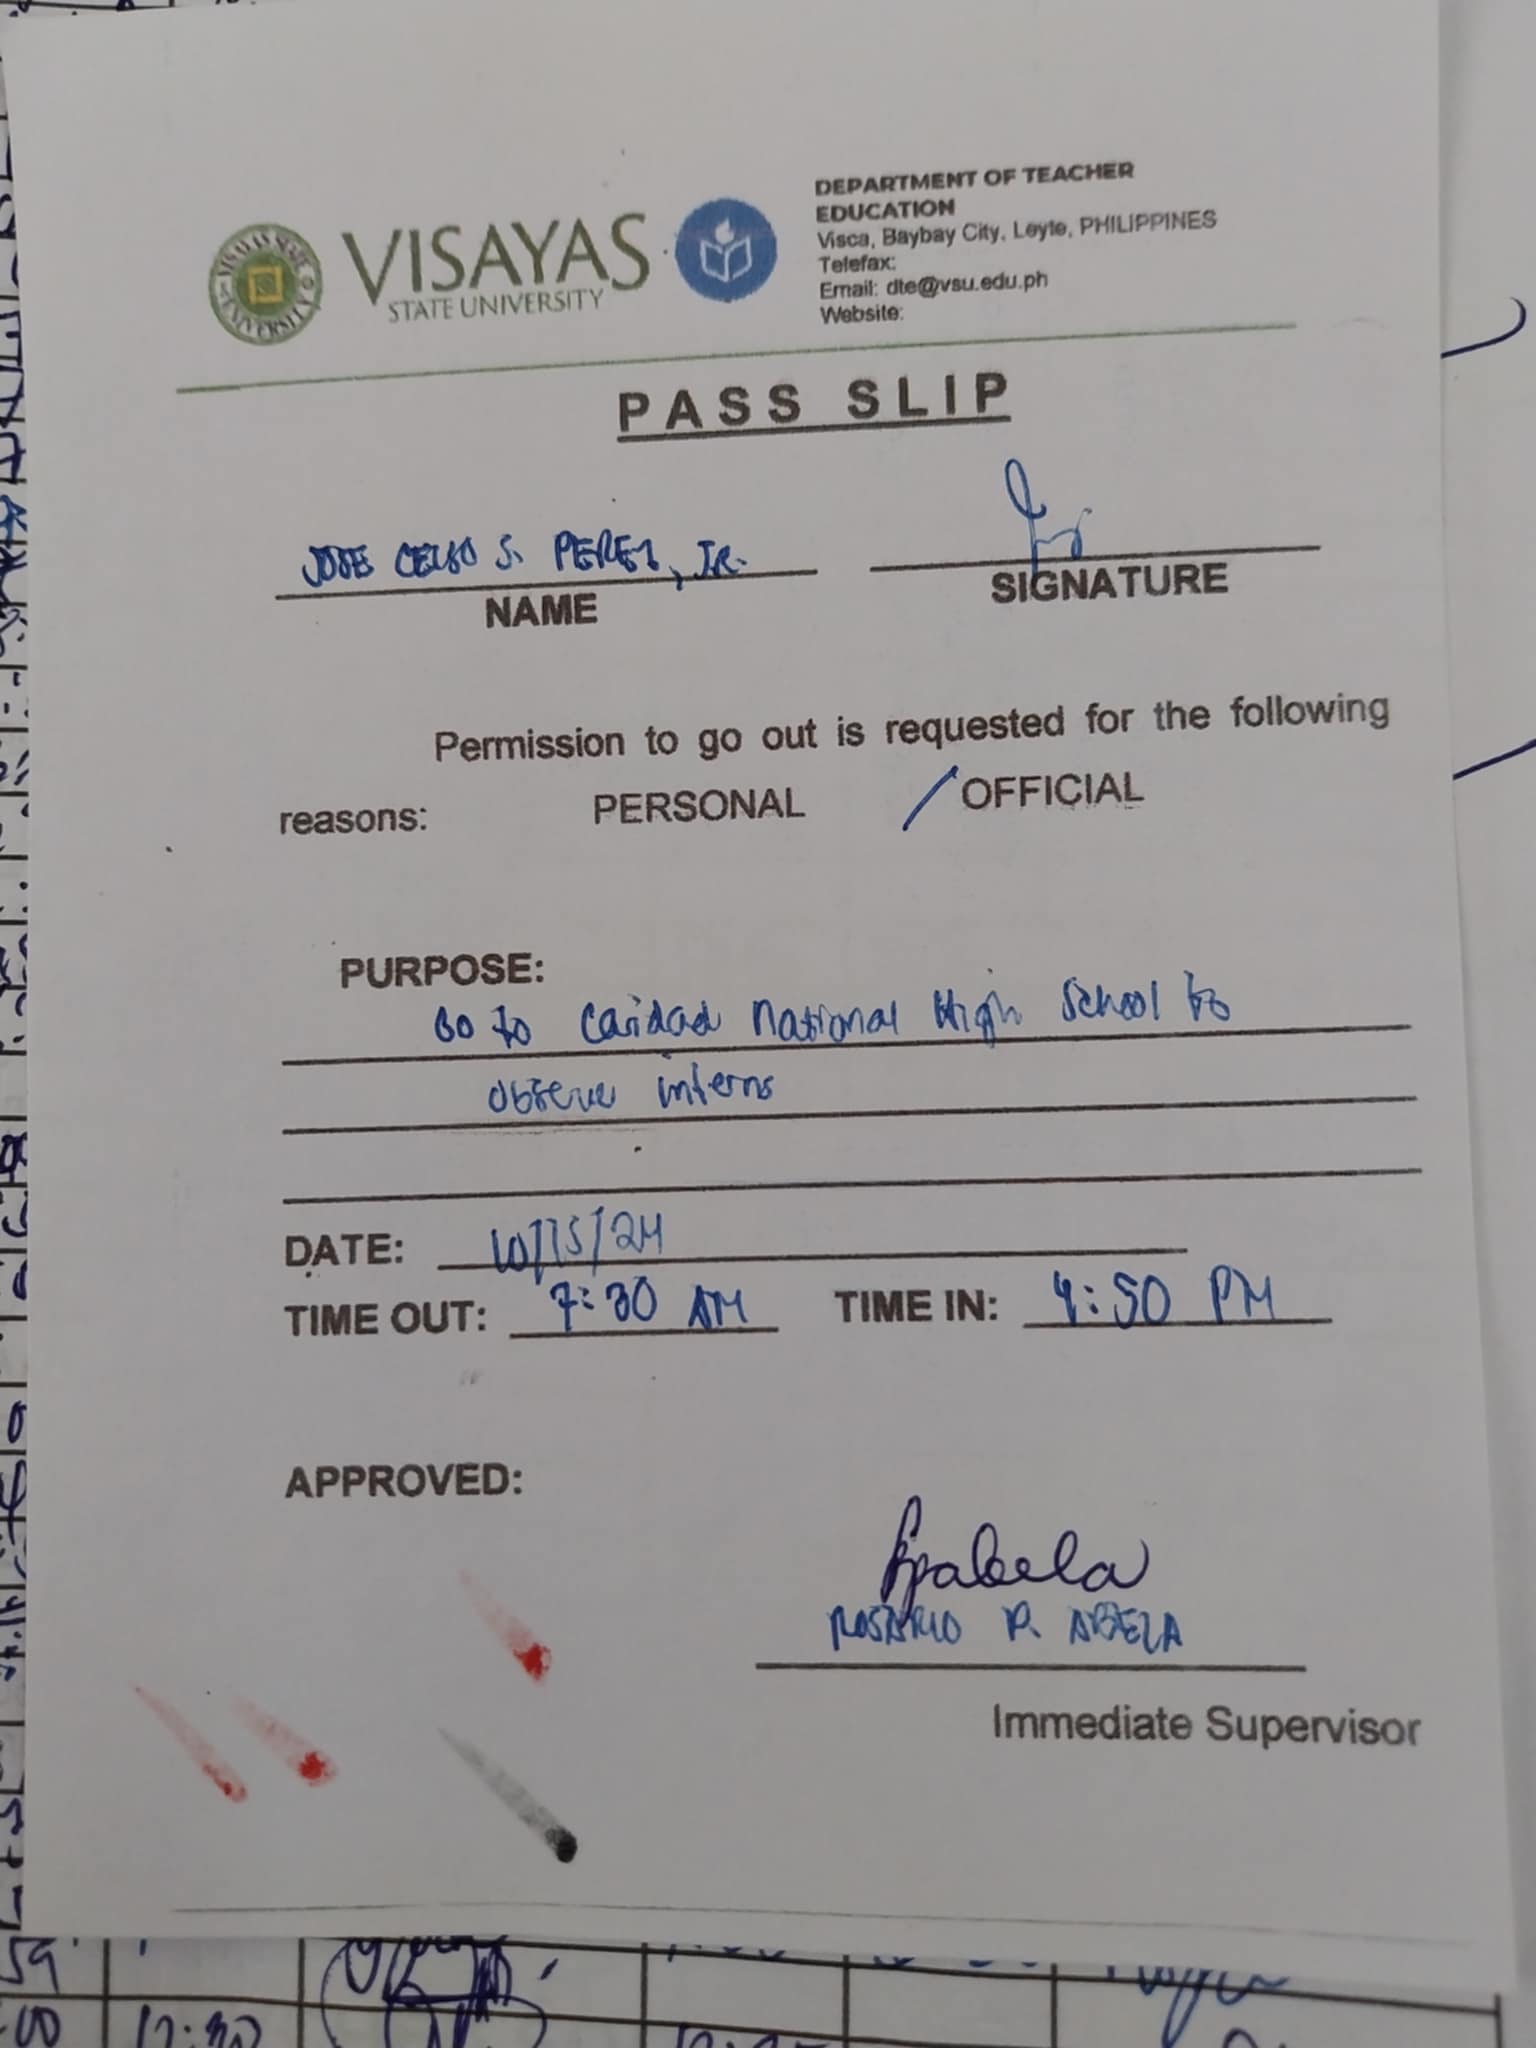 VISAYAS
STATE UNIVERSITY
DEPARTMENT OF TEACHER
EDUCATION
Visca, Baybay City, Leyte, PHILIPPINES
Telefax:
Email: dte@vsu.edu.ph
Website:
PASS SLIP
JOSE CELSO S. PEREZ, JR.
NAME
SIGNATURE
Permission to go out is requested for the following
reasons: PERSONAL / OFFICIAL
PURPOSE:
Go to Caridad National High School to
observe interns
DATE: 10/15/24
TIME OUT: 7:30 AM TIME IN: 4:50 PM
APPROVED:
ROSARIO P. ABELA
Immediate Supervisor
12:30